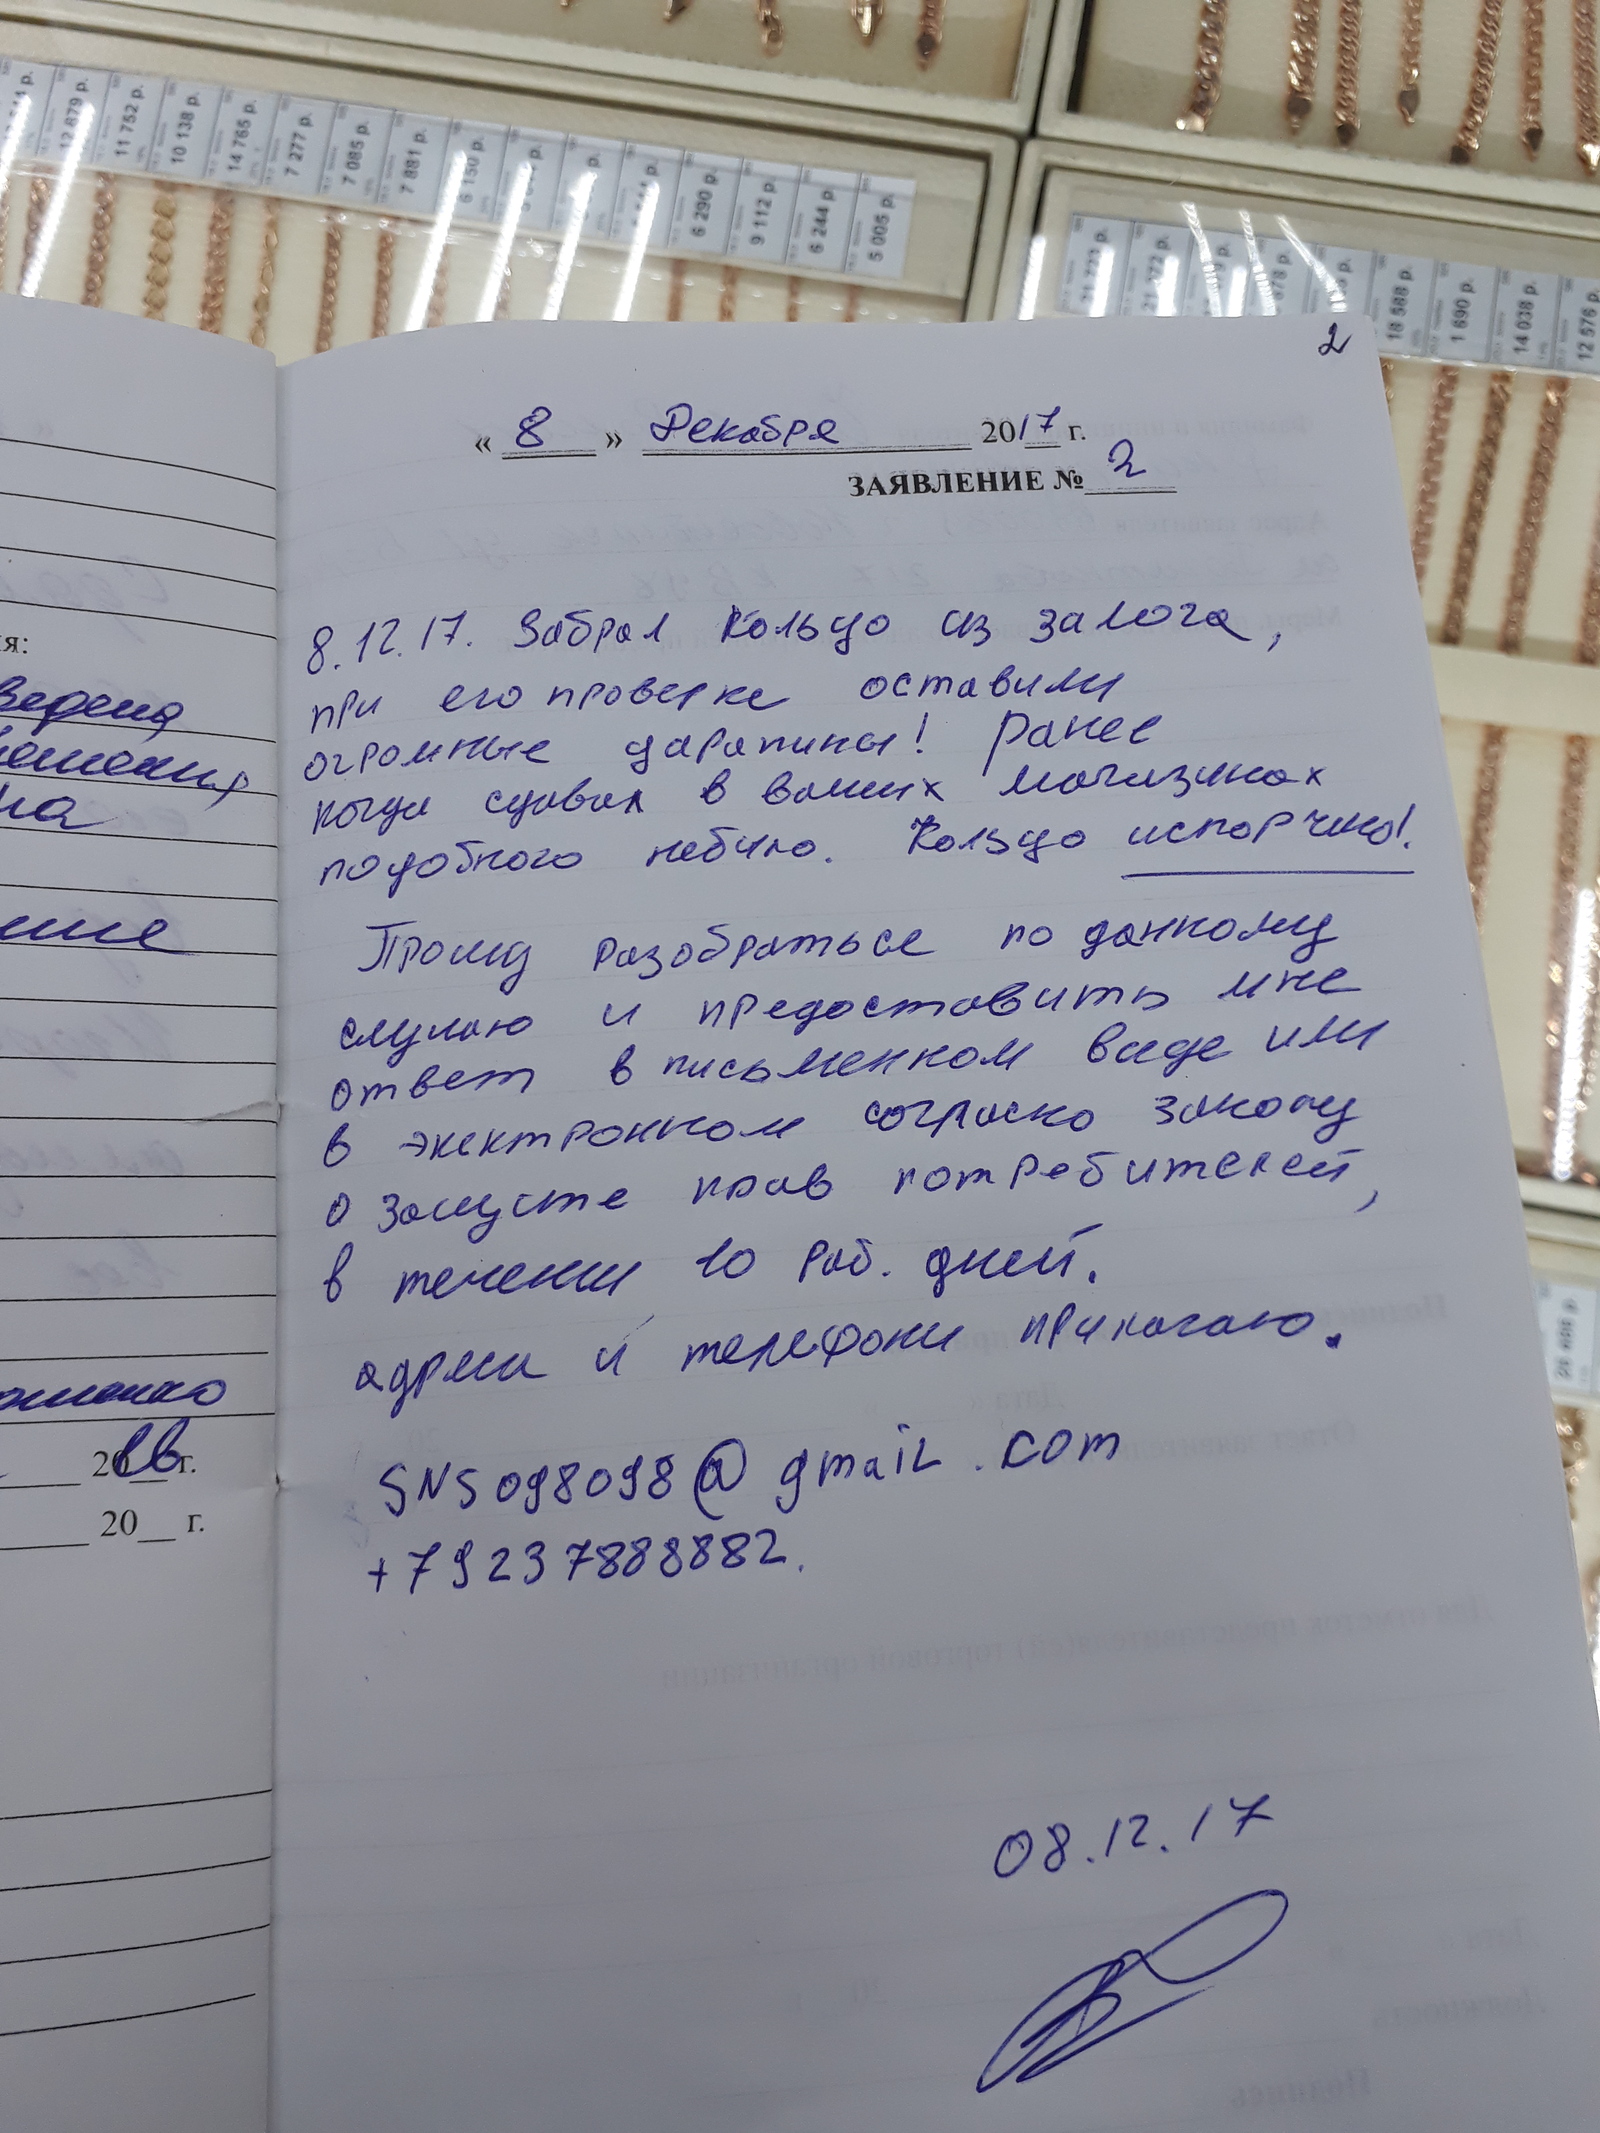 12 879 р.
11 752 р.
10 138 р.
14 765 р.
7 277 р.
7 085 р.
7 881 р.
6 150 р.
6 290 р.
9 112 р.
6 244 р.
5 005 р.
21 772 р.
18 588 р.
1 690 р.
14 038 р.
12 576 р.
2
« 8 » Декабря 2017 г.
ЗАЯВЛЕНИЕ № 2
8.12.17. Забрал кольцо из залога,
при его проверке оставили
огромные царапины! Ранее
когда сдавал в ваших магазинах
подобного небыло. Кольцо испорчено!
Прошу разобраться по данному
случаю и предоставить мне
ответ в письменном виде или
в электронном согласно закону
о Защите прав потребителей,
в течении 10 раб. дней.
адреса и телефоны прилагаю.
SNS098098@gmail.com
+79237888882.
08.12.17
ия:
20 г.
20__ г.